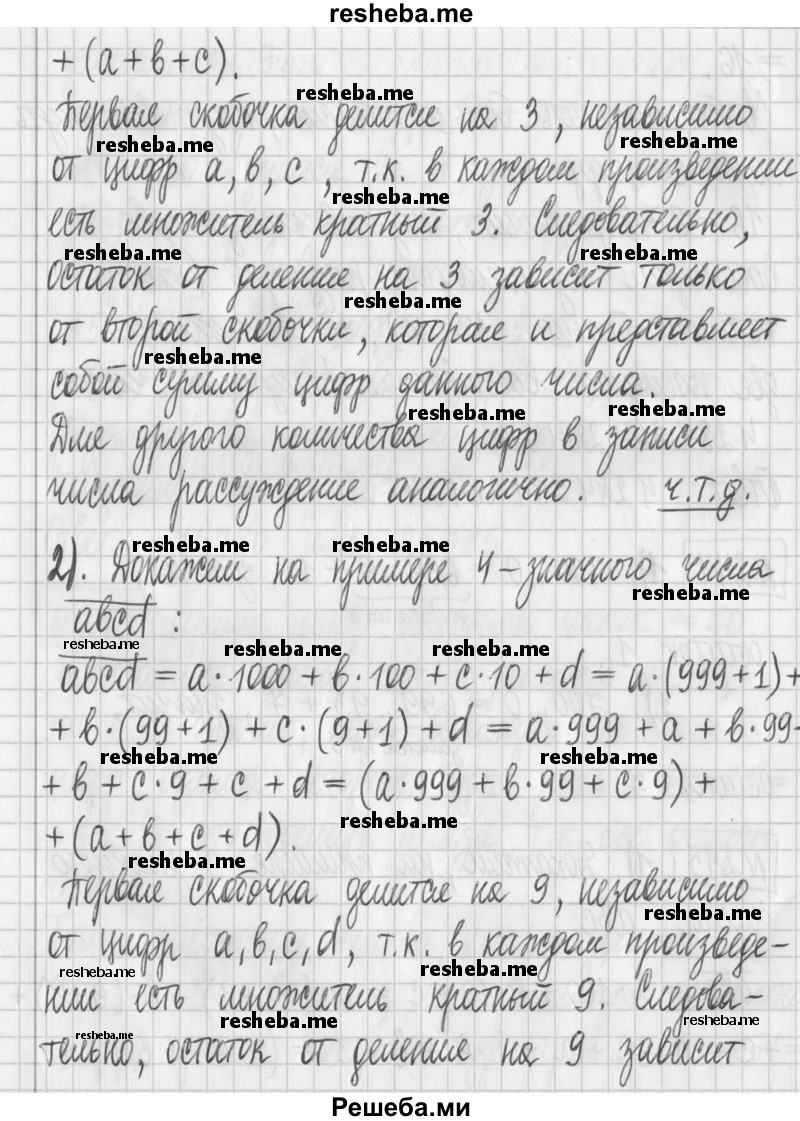 resheba.me
+(a+b+c).
resheba.me
Первая скобочка делится на 3, независимо
resheba.me resheba.me
от цифр a, b, c, т.к. в каждом произведении
resheba.me
есть множитель кратный 3. Следовательно,
resheba.me resheba.me
остаток от деления на 3 зависит только
resheba.me
от второй скобочки, которая и представляет
resheba.me
собой сумму цифр данного числа.
resheba.me resheba.me
Для другого количества цифр в записи
числа рассуждение аналогично. ч.т.д.
resheba.me resheba.me
2). Докажем на примере 4-значного числа
resheba.me
abcd :
resheba.me resheba.me resheba.me
abcd = a·1000 + b·100 + c·10 + d = a·(999+1)+
+ b·(99+1) + c·(9+1) + d = a·999 + a + b·99
resheba.me resheba.me
+ b + c·9 + c + d = (a·999 + b·99 + c·9) +
resheba.me
+(a+b+c+d).
resheba.me
Первая скобочка делится на 9, независимо
resheba.me
от цифр a, b, c, d, т.к. в каждом произведе-
resheba.me resheba.me
нии есть множитель кратный 9. Следова-
resheba.me resheba.me resheba.me
тельно, остаток от деления на 9 зависит
Решеба.ми